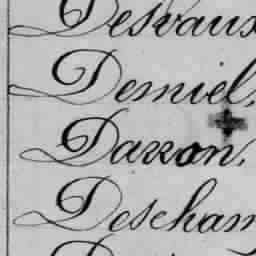 Desvaux
Demiel,
Darron,
Descham